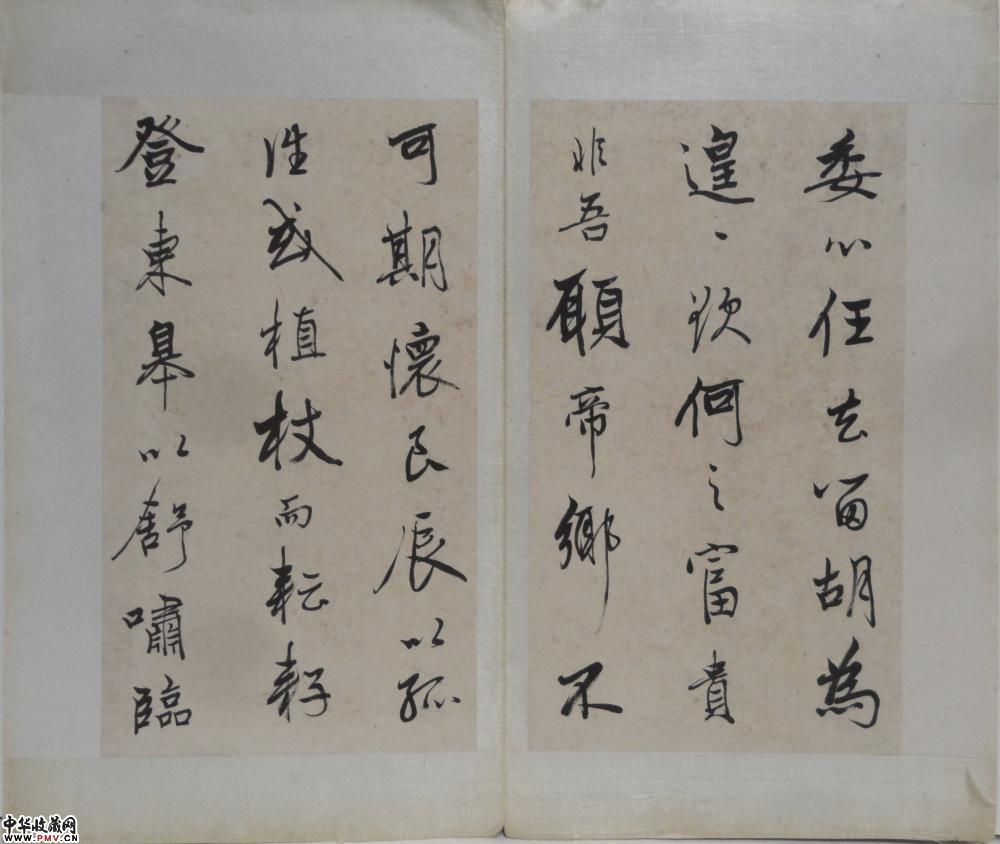 委心任去留胡為
遑々欲何之富貴
非吾願帝鄉不
可期懷良辰以孤
往或植杖而耘耔
登東皋以舒嘯臨
中华收藏网
WWW.PMV.CN